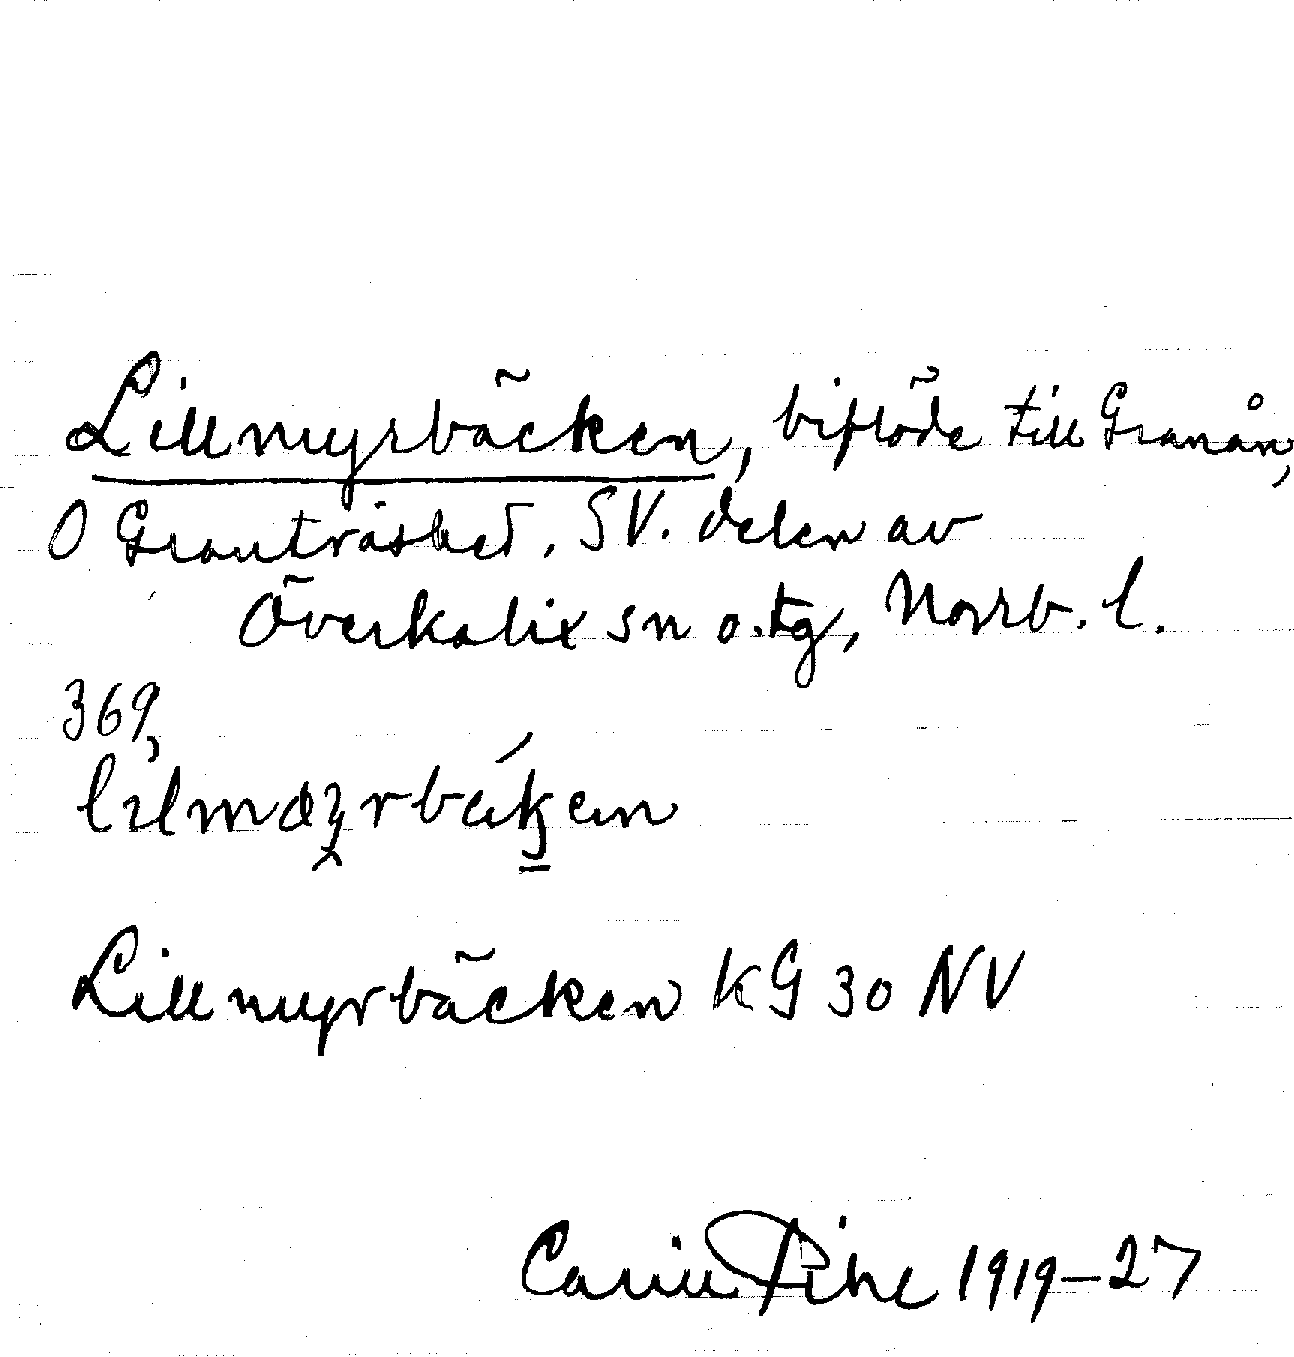 Lillmyrbäcken, biflöde till Granån,
O Granträsket, SV. delen av
Överkalix sn o. tg, Norrb. l.
369,
Lillmyrbäcken KG 30 NV
Carin Pihl 1919–27